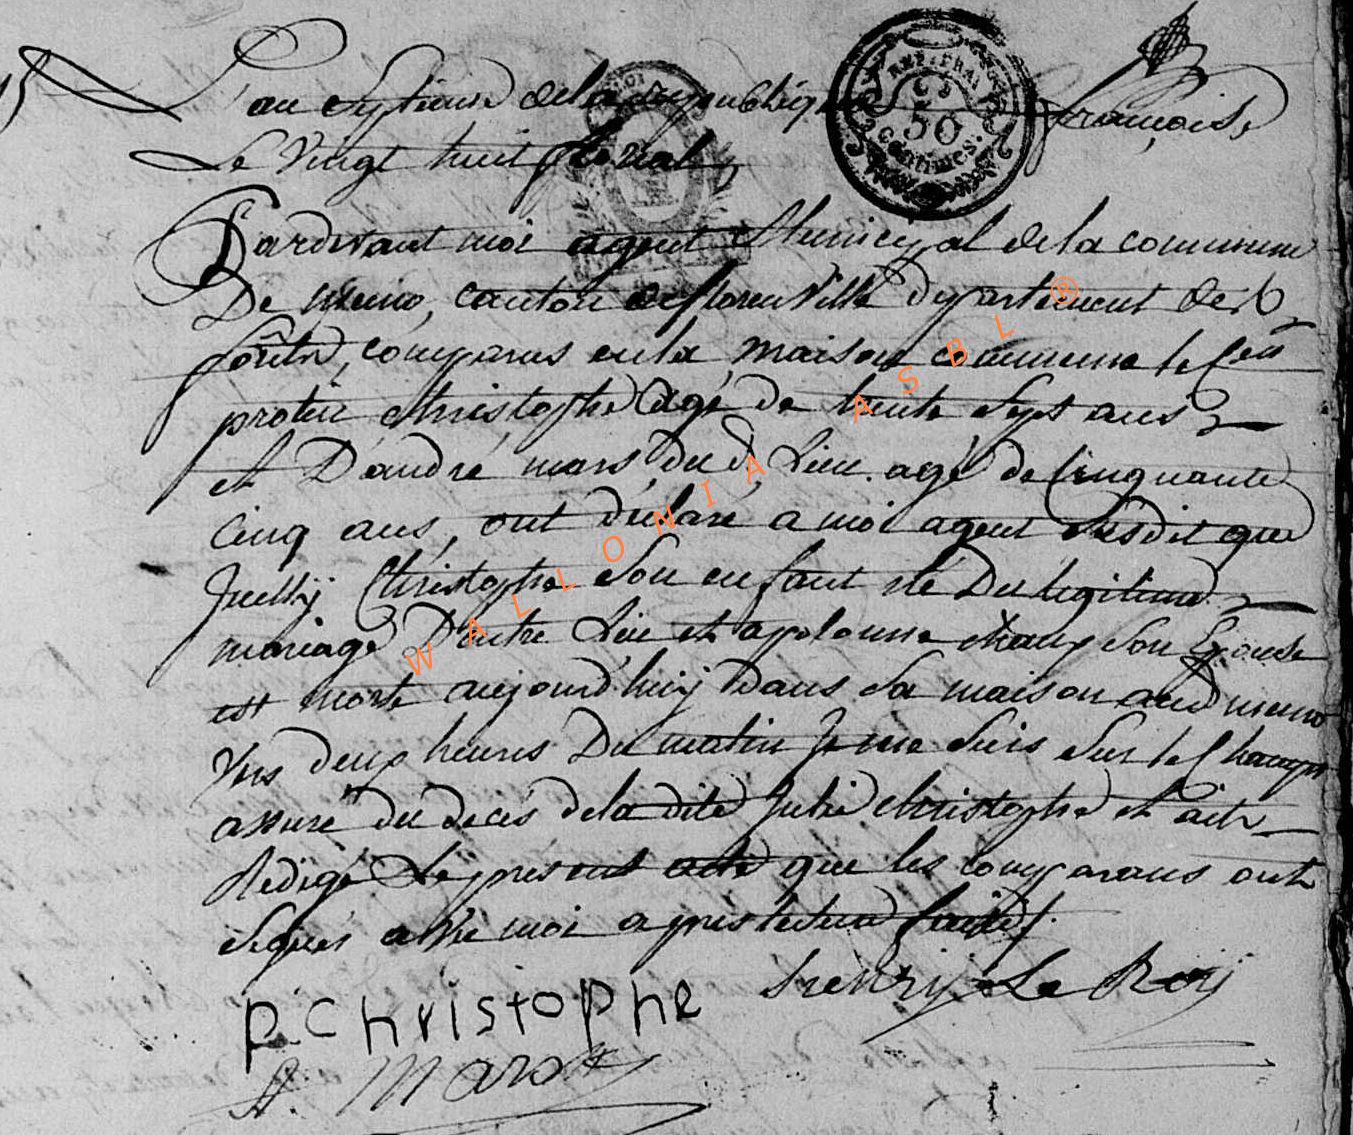 15
L'an septieme de la republique françoise
Le vingt huit floreal
Pardevant moi agent Municipal de la commune
De muno, canton de florenville departement des
forêts, comparus en la maison commune le Cen
protin christophe agé de trente sept ans
et D'andré mars, du d. Lieu agé de Cinquante
cinq ans, ont déclaré a moi agent susdit que
Christophe son enfant né Du legitime
mariage D'entre Lui et apolonne chaux son Epouse
est morte aujourd'huij Dans sa maison aud muno
vers deux heures Du matin Je me suis sur le Champ
assuré du deces de la dite Julie christophe et ai
Redigé Le present acte que les comparans ont
signés avec moi apres lecture faite.
P. Christophe henrij Le Roij
A. Marx
REP. FRA
50
centimes.
WALLONIA ASBL ®